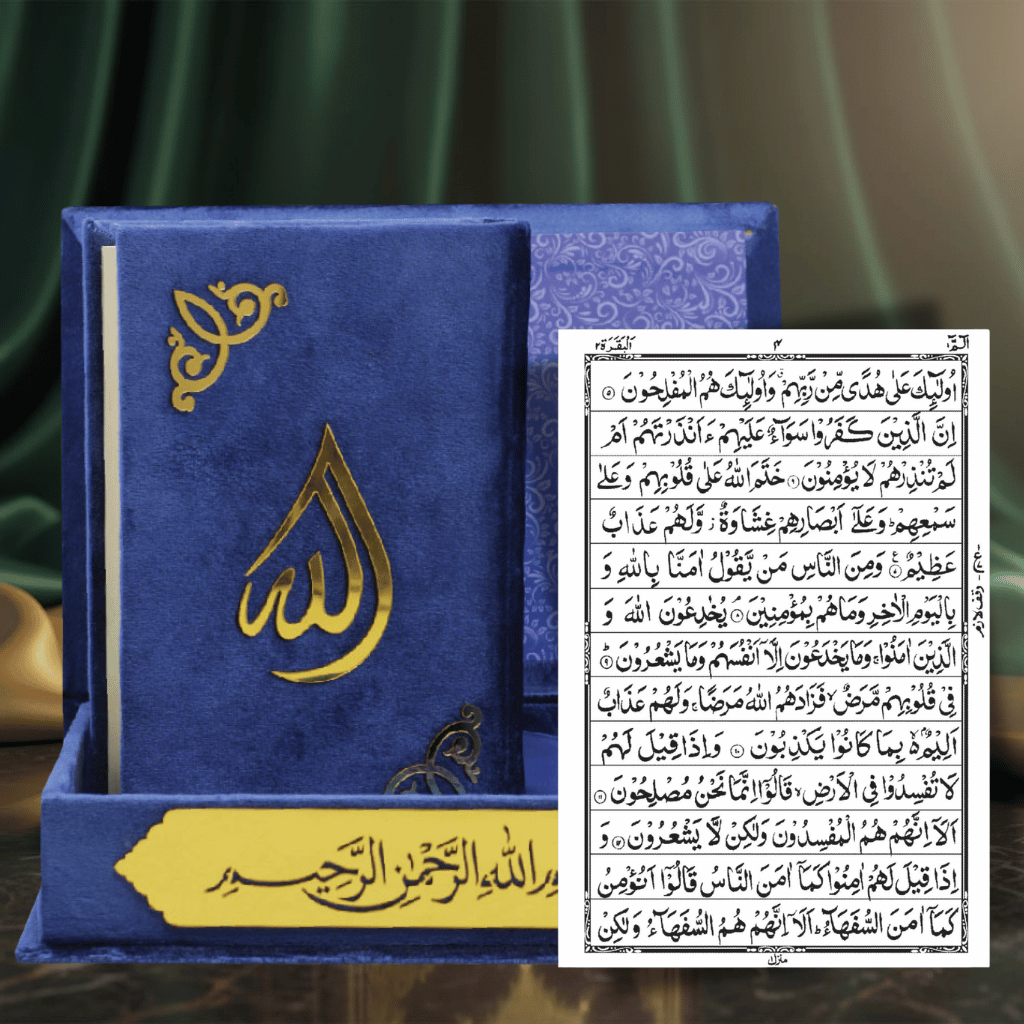 الله
الله الرحمن الرحيم
الٓمّٓ ١
٤
اَلْبَقَرَة ٢
اُولٰٓئِكَ عَلٰى هُدًى مِّنْ رَّبِّهِمْ ۙ وَاُولٰٓئِكَ هُمُ الْمُفْلِحُوْنَ ۝۵
اِنَّ الَّذِيْنَ كَفَرُوْا سَوَآءٌ عَلَيْهِمْ ءَاَنْذَرْتَهُمْ اَمْ
لَمْ تُنْذِرْهُمْ لَا يُؤْمِنُوْنَ ۝۶ خَتَمَ اللّٰهُ عَلٰى قُلُوْبِهِمْ وَعَلٰى
سَمْعِهِمْ ؕ وَعَلٰٓى اَبْصَارِهِمْ غِشَاوَةٌ ؗ وَّلَهُمْ عَذَابٌ
عَظِيْمٌ ۝۷ وَمِنَ النَّاسِ مَنْ يَّقُوْلُ اٰمَنَّا بِاللّٰهِ وَ
بِالْيَوْمِ الْاٰخِرِ وَمَا هُمْ بِمُؤْمِنِيْنَ ۝۸ يُخٰدِعُوْنَ اللّٰهَ وَ
الَّذِيْنَ اٰمَنُوْا ۚ وَمَا يَخْدَعُوْنَ اِلَّآ اَنْفُسَهُمْ وَمَا يَشْعُرُوْنَ ۝۹
فِىْ قُلُوْبِهِمْ مَّرَضٌ ۙ فَزَادَهُمُ اللّٰهُ مَرَضًا ۚ وَلَهُمْ عَذَابٌ
اَلِيْمٌ ۙ۬ بِمَا كَانُوْا يَكْذِبُوْنَ ۝۱۰ وَاِذَا قِيْلَ لَهُمْ
لَا تُفْسِدُوْا فِى الْاَرْضِ ۙ قَالُوْٓا اِنَّمَا نَحْنُ مُصْلِحُوْنَ ۝۱۱
اَلَآ اِنَّهُمْ هُمُ الْمُفْسِدُوْنَ وَلٰكِنْ لَّا يَشْعُرُوْنَ ۝۱۲ وَ
اِذَا قِيْلَ لَهُمْ اٰمِنُوْا كَمَآ اٰمَنَ النَّاسُ قَالُوْٓا اَنُؤْمِنُ
كَمَآ اٰمَنَ السُّفَهَآءُ ؕ اَلَآ اِنَّهُمْ هُمُ السُّفَهَآءُ وَلٰكِنْ
وقف لازم
منزل